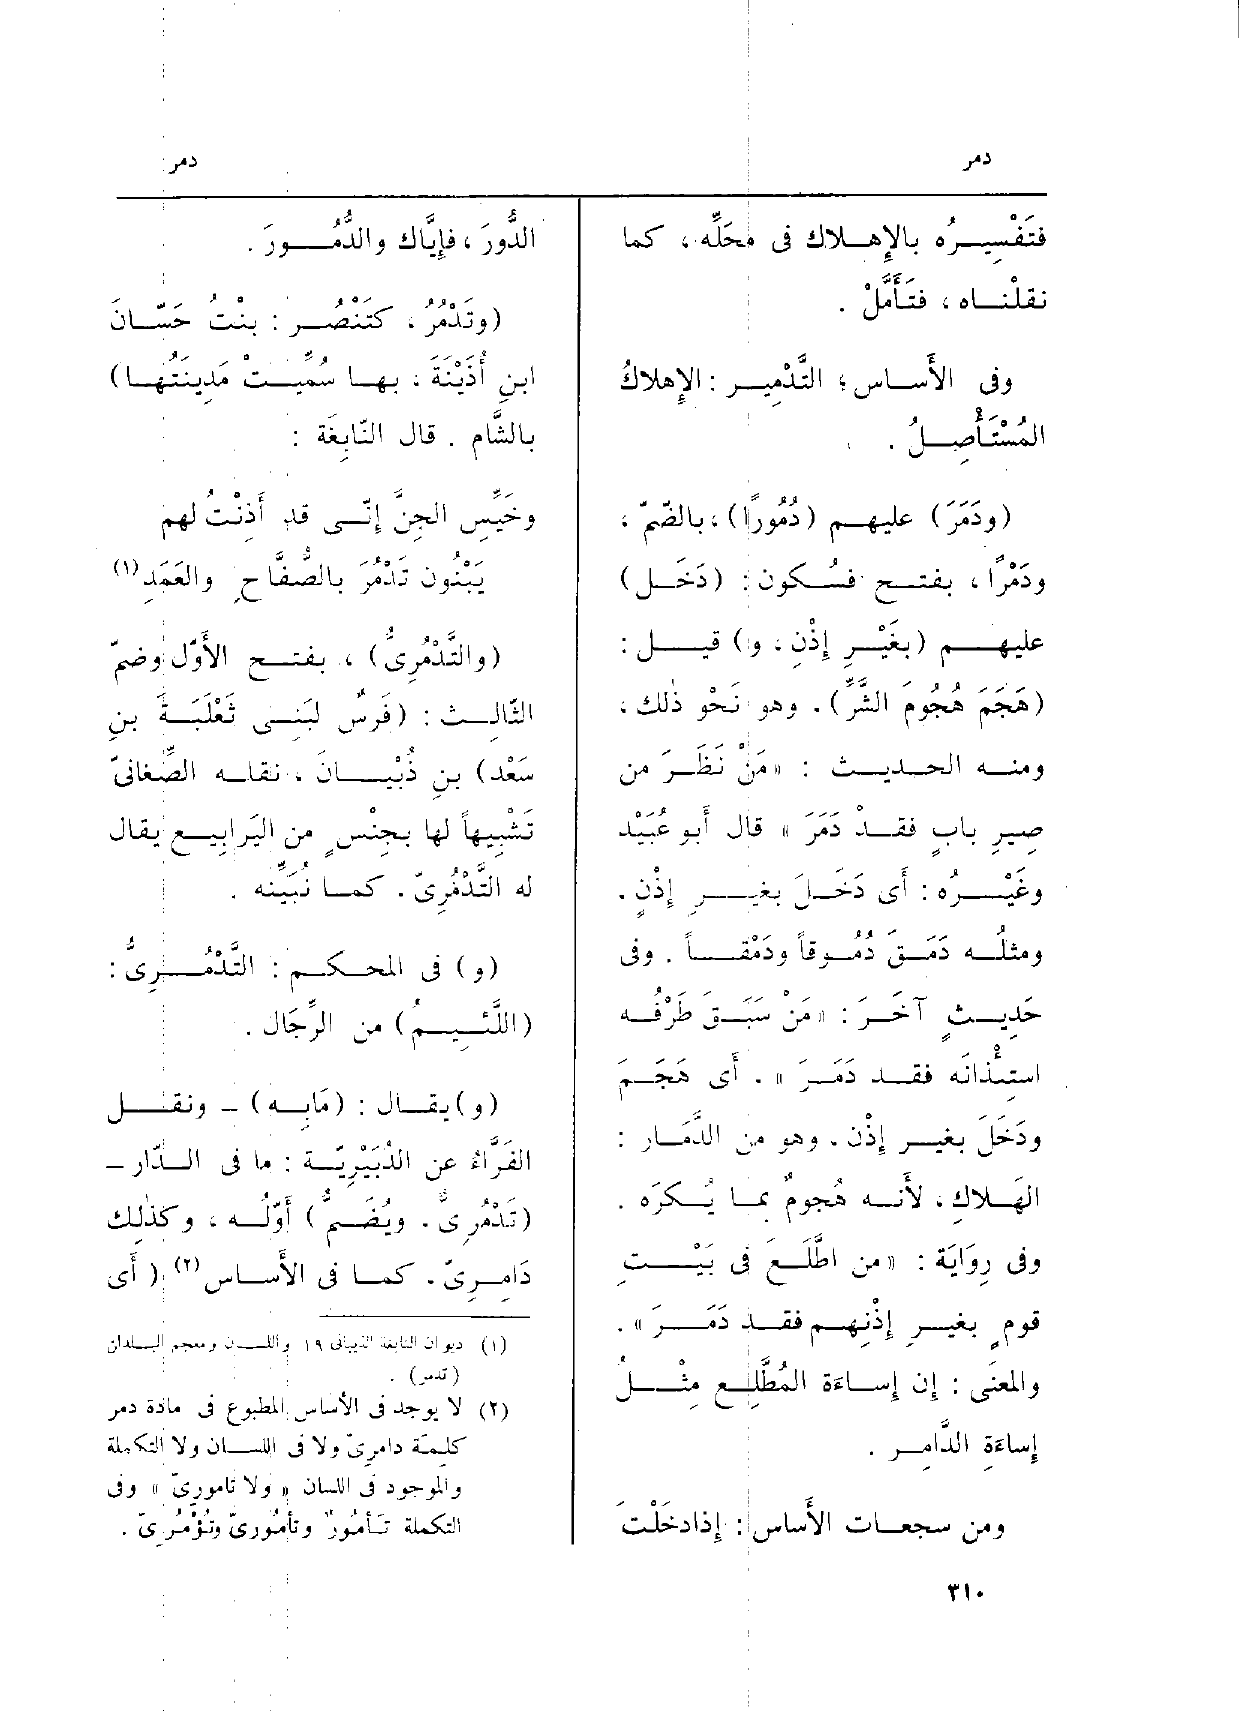 دمر
دمر
فَتَفْسِيرُه بالإِهْلاك فى مَحَلِّه، كما
نقلْنَاه، فتَأَمَّلْ.
وفى الأَساس؛ التَّدْمِير: الإِهلاكُ
المُسْتَأْصِلُ.
(ودَمَرَ) عليهم (دُمُورًا)، بالضّم،
ودَمْرًا، بفتح فسُكون: (دَخَل)
عليهم (بغَيْرِ إِذْن، و) قيل:
(هَجَمَ هُجُومَ الشَّرِّ). وهو نَحْو ذٰلك،
ومنه الحديث: «مَنْ نَظَرَ من
صِيرِ بابٍ فقد دَمَرَ» قال أَبو عُبَيْد
وغَيْرُه: أَى دَخَلَ بغيرِ إِذْنٍ.
ومثلُه دَمَقَ دُمُوقاً ودَمْقاً. وفى
حَدِيثٍ آخَرَ: «مَنْ سَبَقَ طَرْفُه
استِئْذَانَه فقد دَمَرَ». أَى هَجَمَ
ودَخَلَ بغيرِ إِذْن. وهو من الدَّمَارِ:
الهَلاكِ، لأَنه هُجومٌ بما يُكرَه.
وفى رِوَايَة: «من اطَّلَعَ فى بَيْتِ
قومٍ بغيرِ إِذْنِهِم فقد دَمَرَ».
والمعنَى: إِن إِساءَة المُطَّلِعِ مثْلُ
إِساءَة الدَّامِرِ.
ومن سجعات الأَساس: إِذا دخَلْتَ
الدُّورَ، فإِيَّاك والدُّمُورَ.
(وتَدْمُرُ، كتَنْصُر: بنْتُ حَسّانَ
ابنِ أُذَيْنَةَ، بها سُمِّيتْ مَدِينَتُها)
بالشَّامِ. قال النّابِغَة:
وخَيِّسِ الجِنَّ إِنّى قد أَذِنْتُ لهم
يَبْنُون تَدْمُرَ بالصُّفَّاحِ والعَمَدِ(١)
(والتَّدْمُرِىُّ)، بفتح الأَوّل وضمّ
الثّالِث: (فَرَسٌ لبَنِى ثَعْلَبَةَ بنِ
سَعْد) بنِ ذُبْيَانَ، نقله الصّغانىّ
تَشْبِيهاً لها بجِنْسٍ من اليَرابِيع يقال
له التَّدْمُرِىّ. كما نُبَيِّنه.
(و) فى المحكم: التَّدْمُرِىُّ:
(اللَّئِيمُ) من الرِّجَال.
(و) يقال: (مَابِه) – ونقل
الفَرَّاءُ عن الدُّبَيْرِيَّة: ما فى الدّارِ –
(تَدْمُرِىٌّ. ويُضَمُّ) أَوّلُه، وكذٰلك
دَامِرِىّ. كما فى الأَساس(٢) (أَى
(١) ديوان النابغة الذبيانى ١٩ واللسان ومعجم البلدان
(تدمر).
(٢) لا يوجد فى الأساس المطبوع فى مادة دمر
كلمة دامرىّ ولا فى اللسان ولا التكملة
والموجود فى اللسان « ولا تامورىّ » وفى
التكملة تَأْمُورٌ وتأمُورِىّ وتُؤْمُرِىّ.
٣١٠